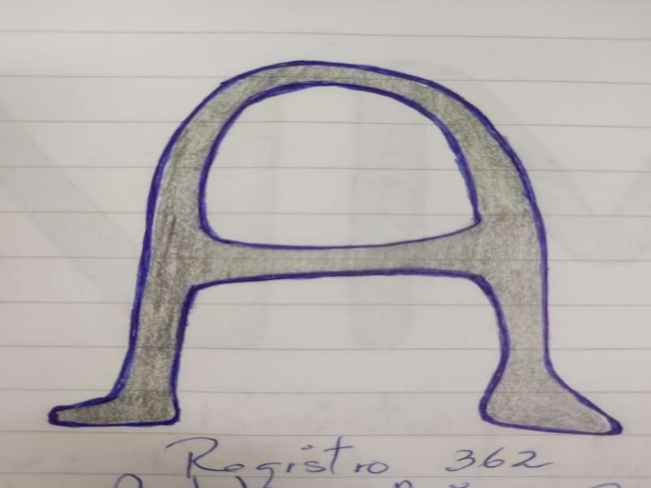 A
Registro 362